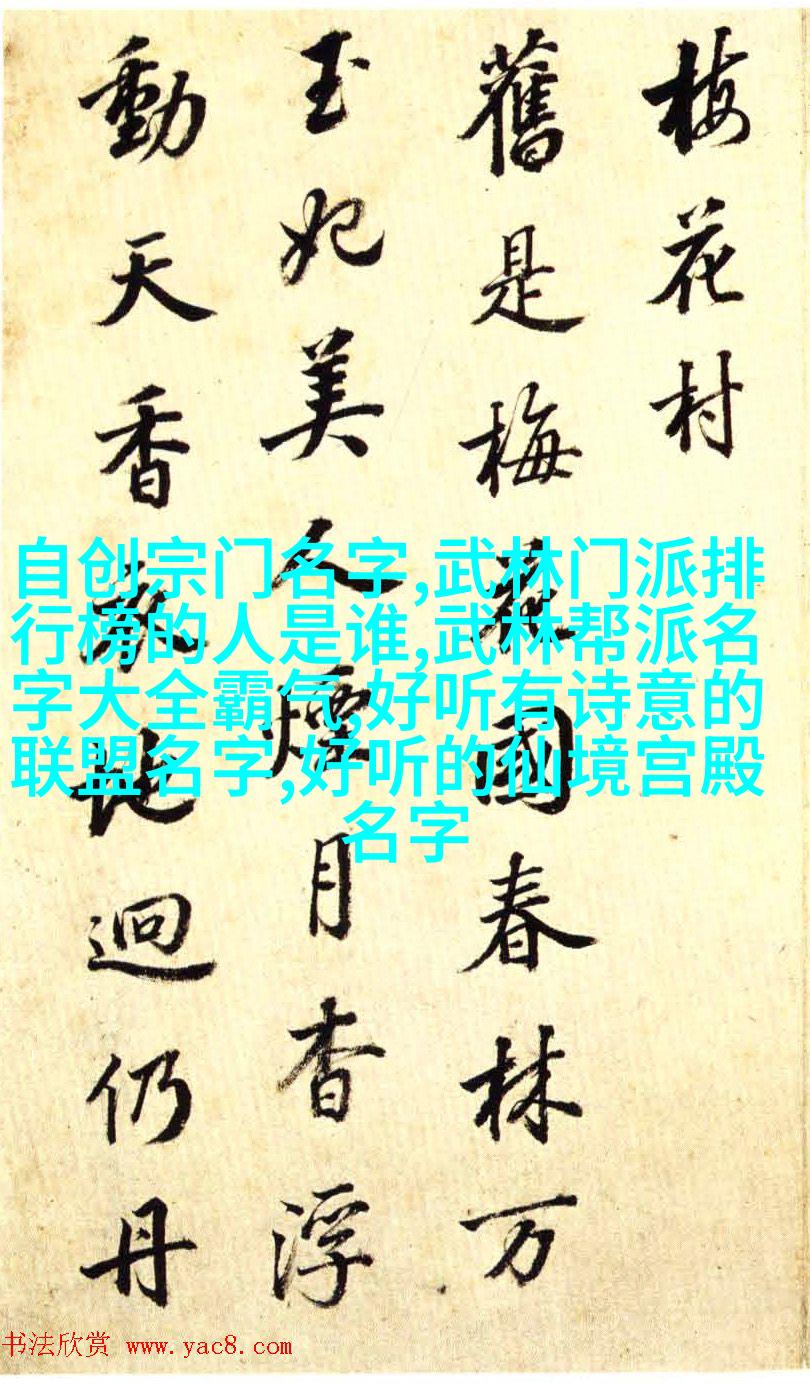 梅花村
舊是梅花國春林万
玉妃美人煙月杳浮
動天香地迥仍丹
自创宗门名字,武林门派排
行榜的人是谁,武林帮派名
字大全霸气,好听有诗意的
联盟名字,好听的仙境宫殿
名字
书法欣赏 www.yac8.com